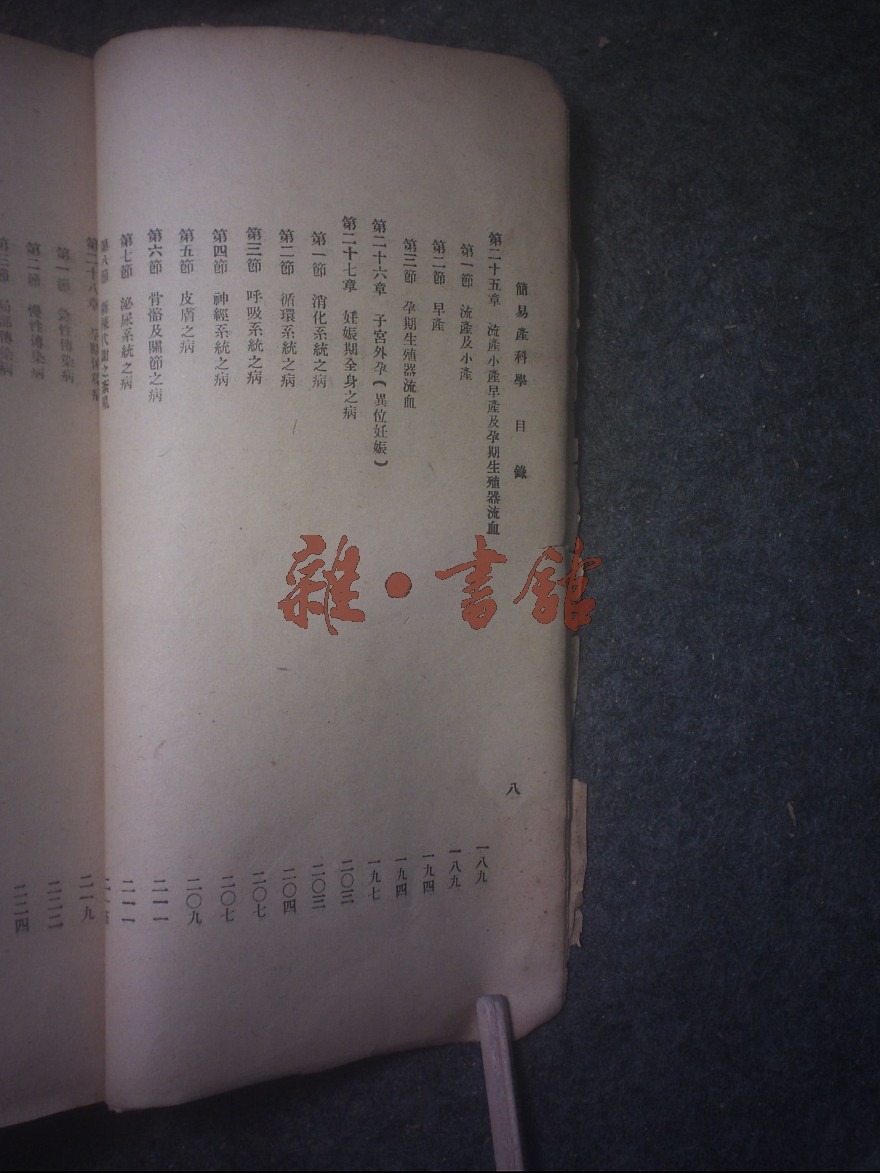 簡易產科學 目錄 八
第二十五章 流產小產早產及孕期生殖器流血 一八九
第一節 流產及小產 一八九
第二節 早產 一九四
第三節 孕期生殖器流血 一九四
第二十六章 子宮外孕(異位妊娠) 一九七
第二十七章 妊娠期全身之病 二〇三
第一節 消化系統之病 二〇三
第二節 循環系統之病 二〇四
第三節 呼吸系統之病 二〇七
第四節 神經系統之病 二〇七
第五節 皮膚之病 二〇九
第六節 骨骼及關節之病 二一一
第七節 泌尿系統之病 二一一
第八節 新陳代謝之
第二十八章 二一九
第一節 急性傳染病 二二二
第二節 慢性傳染病 二二四
第三節 局部傳染病
雜·書館